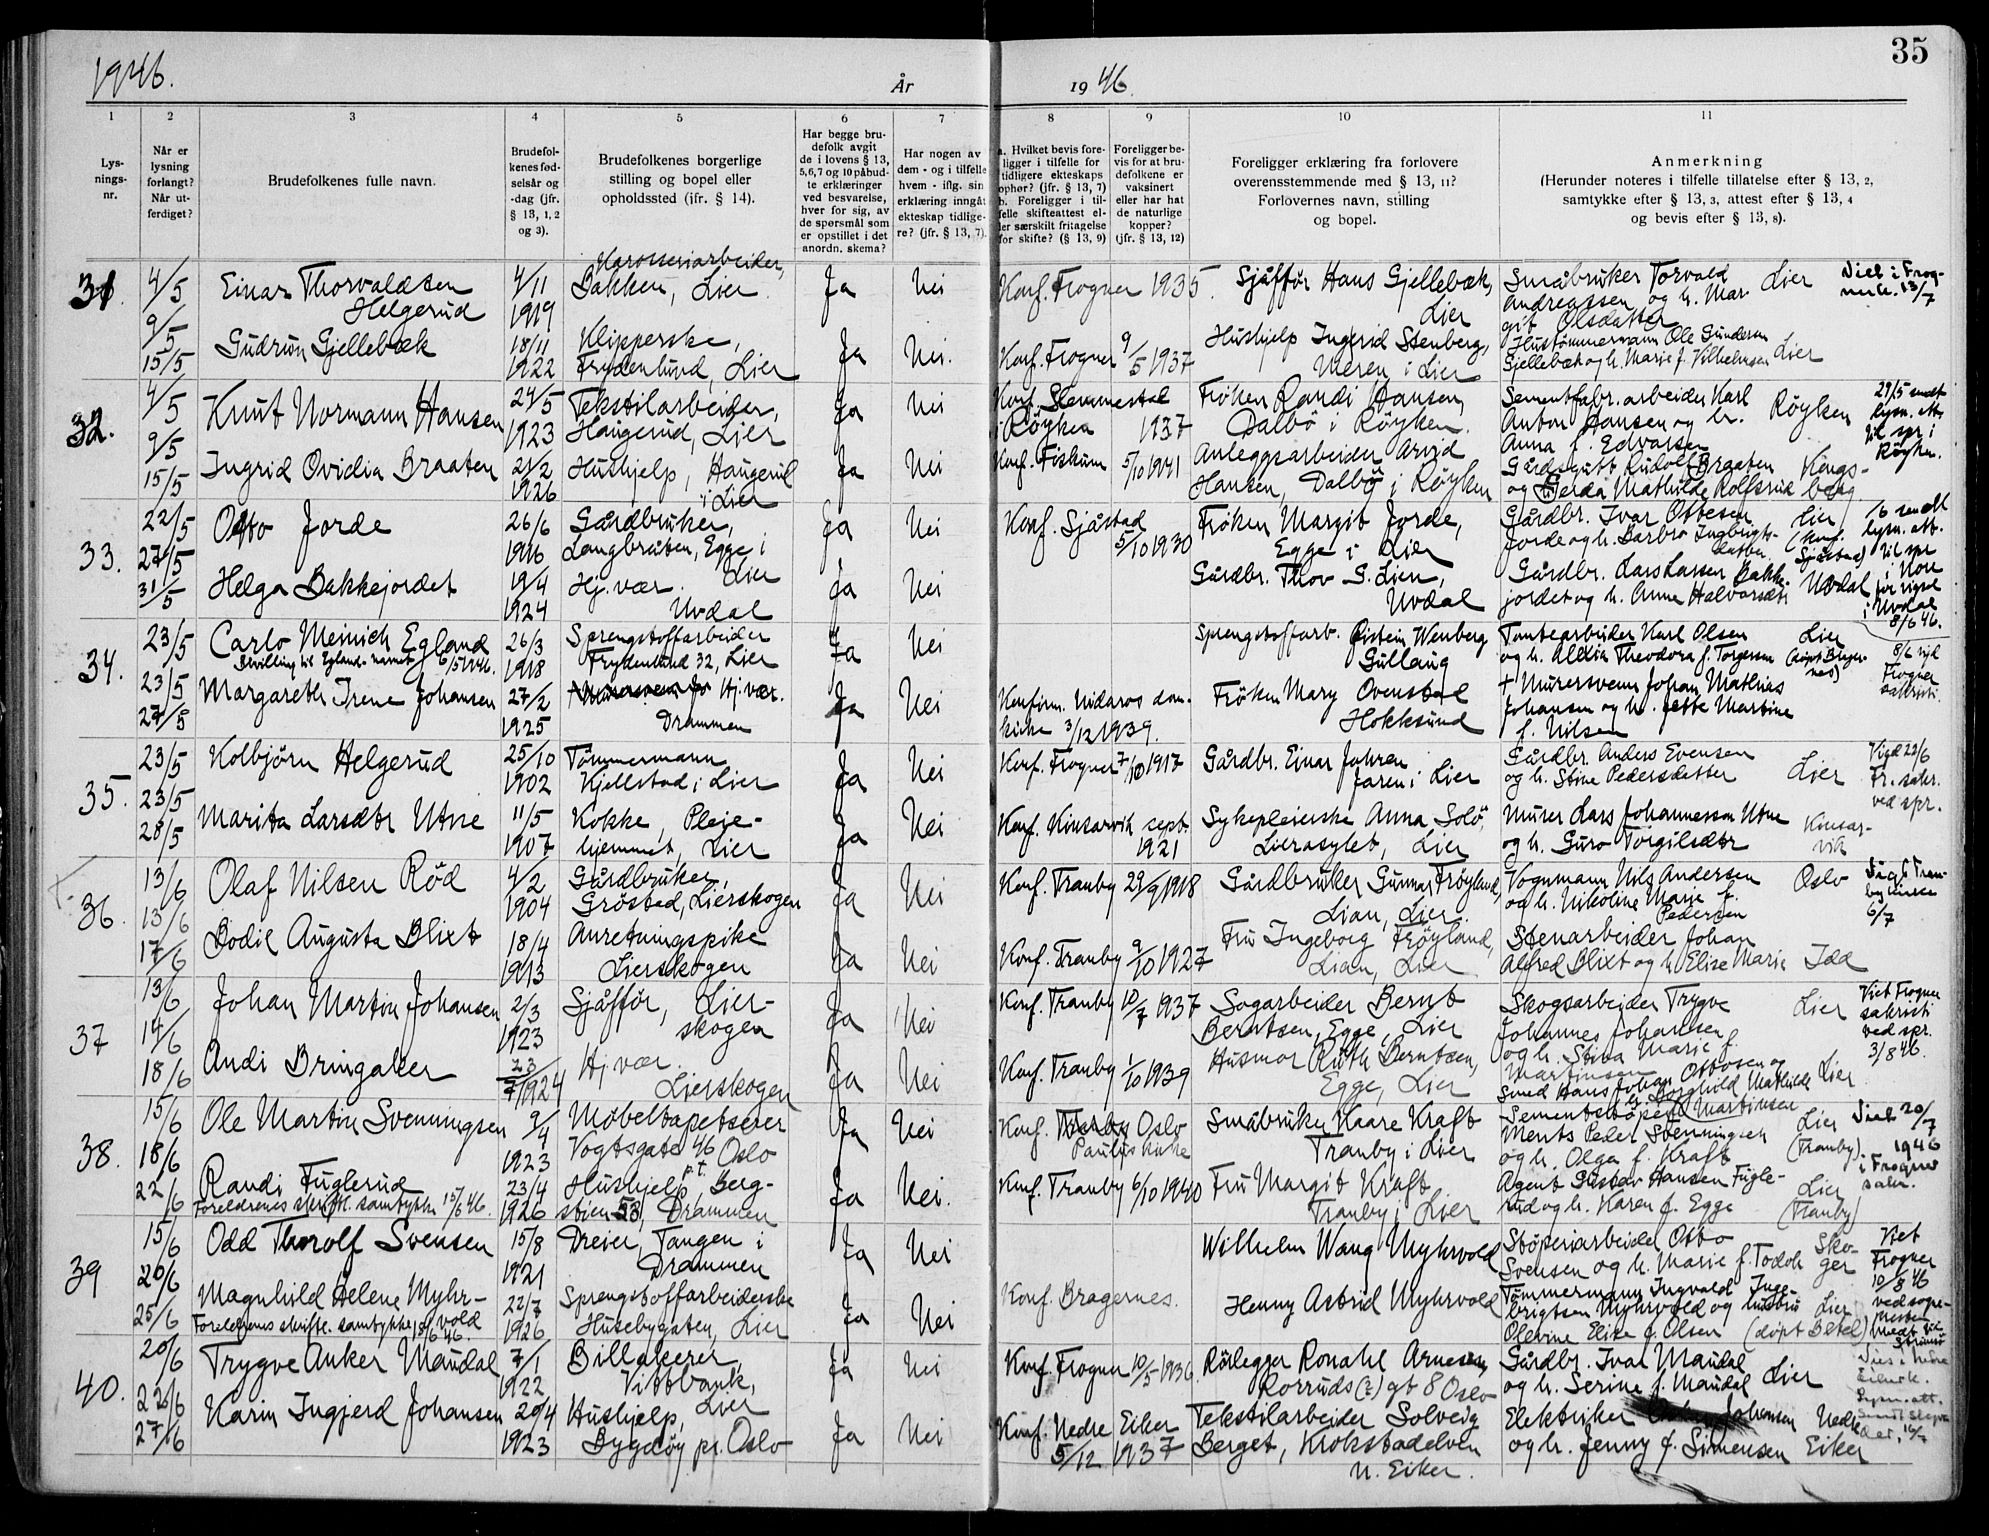 1946.
År
19 46.
35
1
2
3
4
5
6
7
8
9
10
11
Lys-
nings-
nr.
Når er
lysning
forlangt?
Når ut-
ferdiget?
Brudefolkenes fulle navn.
Brudefol-
kenes fød-
selsår og
-dag (jfr.
§ 13, 1, 2
og 3).
Brudefolkenes borgerlige
stilling og bopel eller
opholdssted (jfr. § 14).
Har begge bru-
defolk avgit
de i lovens § 13,
5, 6, 7 og 10 påbud-
te erklæringer
ved besvarelse,
hver for sig, av
de spørsmål som
er opstillet i det
anordn. skema?
Har nogen av
dem - og i tilfelle
hvem - iflg. sin
erklæring inngåt
ekteskap tidlige-
re? (jfr. § 13, 7).
a. Hvilket bevis fore-
ligger i tilfelle for
tidligere ekteskaps
ophør? (jfr. § 13, 7)
b. Foreligger i til-
felle skifteattest el-
ler særskilt fritagelse
for skifte? (§ 13, 9)
Foreligger be-
vis for at bru-
defolkene er
vaksinert
eller har hat
de naturlige
kopper?
(jfr. § 13, 12)
Foreligger erklæring fra forlovere
overensstemmende med § 13, 11?
Forlovernes navn, stilling
og bopel.
Anmerkning
(Herunder noteres i tilfelle tillatelse efter § 13, 2,
samtykke efter § 13, 3, attest efter § 13, 4
og bevis efter § 13, 8).
31. 4/5 9/5 15/5
Einar Thorvaldsen
Helgerud
4/11
1919
Karosseriarbeider,
Bakken, Lier
Ja Nei
Konf. Frogner 1935.
Sjåffør Hans Gjellebæk,
Lier
Småbruker Torvald
Andreassen og h. Mar-
git Olsdatter
Lier
Viet i Frog-
ner k. 13/7
Gudrun Gjellebæk
18/11
1922
Klipperske,
Frydenlund, Lier
Ja Nei.
Konf. Frogner 9/5 1937
Hushjelp Ingerid Stenberg,
Meren i Lier
Hustømmermann Ole Gundersen
Gjellebæk og h. Marie f. Vilhelmsen Lier
32. 4/5 9/5 15/5
Knut Normann Hansen
24/5
1923
Tekstilarbeider,
Haugerud, Lier
Ja Nei
Konf. Slemmestad
i Røyken 1937
Frøken Randi Hansen,
Dalbö i Røyken.
Sementfabr. arbeider Karl
Anton Hansen og h.
Anna f. Edvarsen
Røyken
29/5 sendt
lysn. att.
til spr i
Røyken.
Ingrid Ovidia Braaten
21/2
1926
Hushjelp, Haugerud
i Lier
Ja Nei
Konf. Fiskum 5/10 1941
Anleggsarbeider Arvid
Hansen, Dalbö i Røyken
Gårdsgutt Rudolf Braaten
og Gerda Mathilde Rolfsrud
Kongs-
berg
33. 22/5 27/5 31/5
Otto Jorde
26/6
1916
Gårdbruker,
Langbråten, Egge i
Lier
Ja Nei
Konf. Sjåstad
5/10 1930
Frøken Margit Jorde,
Egge i Lier
Gårdbr. Ivar Ottesen
Jorde og h. Barbro Ingbrigts-
datter
Lier
(konf.
Sjåstad)
/6 sendt
lysn. att.
til spr
i Nore
for vigsel
i Uvdal
8/6 46.
Helga Bakkejordet
19/4
1924
Hj. vær.
Uvdal
Ja Nei
Gårdbr. Thov G. Lien,
Uvdal
Gårdbr. Lars Larsen Bakke-
jordet og h. Anne Halvorsdtr
Uvdal
34. 23/5 23/5 27/5
Carlo Meinich Egland
Bevilling til Egland-navnet 6/5 1946.
26/3
1918
Sprengstoffarbeider
Frydenlund 32, Lier
Ja Nei
Sprengstoffarb. Øistein Wenberg
Gullaug
Tomtearbeider Karl Olsen
og h. Alexia Theodora f. Torgersen
Lier
(døpt Brager-
nes)
8/6 vigd
Frogner
sakristi.
Margareth Irene Johansen
27/2
1925
Hj. vær.
Drammen
Ja Nei
Konfirm. Nidaros dom-
kirke 3/12 1939.
Frøken Mary Ovenstad
Hokksund
+ Murersvenn Johan Mathias
Johansen og h. Jette Martine
f. Nilsen
35. 23/5 23/5 28/5
Kolbjørn Helgerud
25/10
1902
Tømmermann
Kjellstad i Lier
Ja Nei
Konf. Frogner 7/10 1917
Gårdbr. Einar Johren
Faren i Lier
Gårdbr. Anders Evensen
og h. Stine Pedersdatter
Lier
Vigd 22/6
Fr. sakr.
ved spr.
Marita Larsdtr Utne
11/5
1907
Kokke, Pleie-
hjemmet, Lier
Ja Nei
Konf. Kinsarvik sept.
1921
Sykepleierske Anna Solö,
Lierasylet, Lier
Murer Lars Johannesson Utne
og h. Guro Torgilsdtr
Kinsar-
vik
36. 13/6 13/6 17/6
Olaf Nilsen Rød
4/2
1904
Gårdbruker,
Gröstad, Lierskogen
Ja Nei
Konf. Tranby 29/9 1918
Gårdbruker Gunnar Frøyland,
Lian, Lier.
Vognmann Nils Andersen
og h. Nikoline Marie f.
Pedersen
Oslo
Viet Tran-
by kirke
6/7
Bodil Augusta Blixt
18/4
1913
Anretningspike
Lierskogen
Ja Nei
Konf. Tranby 9/10 1927
Fru Ingeborg Frøyland,
Lian, Lier
Stenarbeider Johan
Alfred Blixt og h Elise Marie
Idd
37 13/6 14/6 18/6
Johan Martin Johansen
2/3
1923
Sjåffør, Lier-
skogen
Ja Nei
Konf. Tranby 10/7 1937
Sagarbeider Bernt
Berntsen, Egge, Lier
Skogsarbeider Trygve
Johannes Johansen
og h. Stina Marie f.
Martinsen
Lier
Viet Frogner
sakristi
ved spr.
3/8 46.
Andi Bringaker
23/7 1924
Hj. vær.
Lierskogen
Ja Nei
Konf. Tranby 1/10 1939
Husmor Ruth Berntsen,
Egge, Lier
Smed Hans Johan Ottosen og
h. Borghild Mathilde
Martinsen
Lier
38. 15/6 18/6 22/6
Ole Martin Svenningsen
9/4
1923
Møbeltapetserer
Vogtsgate 46 Oslo
Ja Nei
Konf. Oslo
Paulus kirke
Småbruker Kaare Kraft
Tranby i Lier
Sementstøper
Ments Peder Svenningsen
og h. Olga f. Kraft
Lier
(Tranby).
Viet 20/7
1946
i Frogner
sakr.
Randi Fuglerud
Foreldrenes skriftl. samtykke 15/6 46.
23/4
1926
Hushjelp p.t. Berg-
stien 53, Drammen
Ja Nei.
Konf. Tranby 6/10 1940
Fru Margit Kraft
Tranby i Lier
Agent Gustav Hansen Fugle-
rud og h. Karen f. Egge
Lier
(Tranby)
39 15/6 20/6 25/6
Odd Thorolf Svensen
15/8
1921
Dreier, Tangen i
Drammen
Ja Nei
Wilhelm Wang Myhrvold
Støperiarbeider Otto
Svensen og h. Marie f. Todok
Sko-
ger
Viet
Frogner
10/8 46
ved sogne-
presten
Magnhild Helene Myhr-
vold
Foreldrenes skriftl. samtykke 15/6 46.
22/7
1926
Sprengstoffarbeiderske
Husebygaten, Lier
Ja Nei
Konf. Bragernes.
Henny Astrid Myhrvold
Tømmermann Ingvald Inge-
brigtsen Myhrvold og hustru
Olevine Elise f. Olsen
Lier
(døpt Betel)
40. 20/6 22/6 27/6
Trygve Anker Maudal
7/1
1922
Billakerer,
Vittbank,
Lier
Ja Nei
Konf. Frogner 10/5 1936.
Rørlegger Ronald Arnesen,
Rorruds(?) gt 8 Oslo
Gårdbr. Ivar Maudal
og h. Serine f. Maudal
Lier
Vies i Nedre
Eiker k.
Lysn. att.
Karin Ingjerd Johansen
20/4
1923
Hushjelp,
Bygdøy pr. Oslo
Ja Nei
Konf. Nedre Eiker
5/12 1937
Tekstilarbeider Solveig
Berget, Krokstadelven
N. Eiker.
Elektriker Johansen
og h. Jenny f. Simensen
Nedre
Eiker